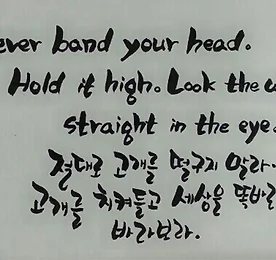 ever band your head.
Hold it high. Look the w
straight in the eye.
절대로 고개를 떨구지 말라.
고개를 치켜들고 세상을 똑바로
바라보라.